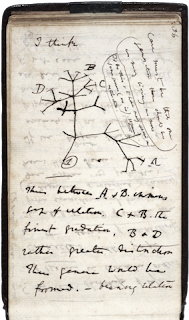 36
I think
Case must be that one
B
C
D
A
1
Thus between A & B. immense
gap of relation. C & B. the
finest gradation, B & D
rather greater distinction
Thus genera would be
formed. — bearing relation